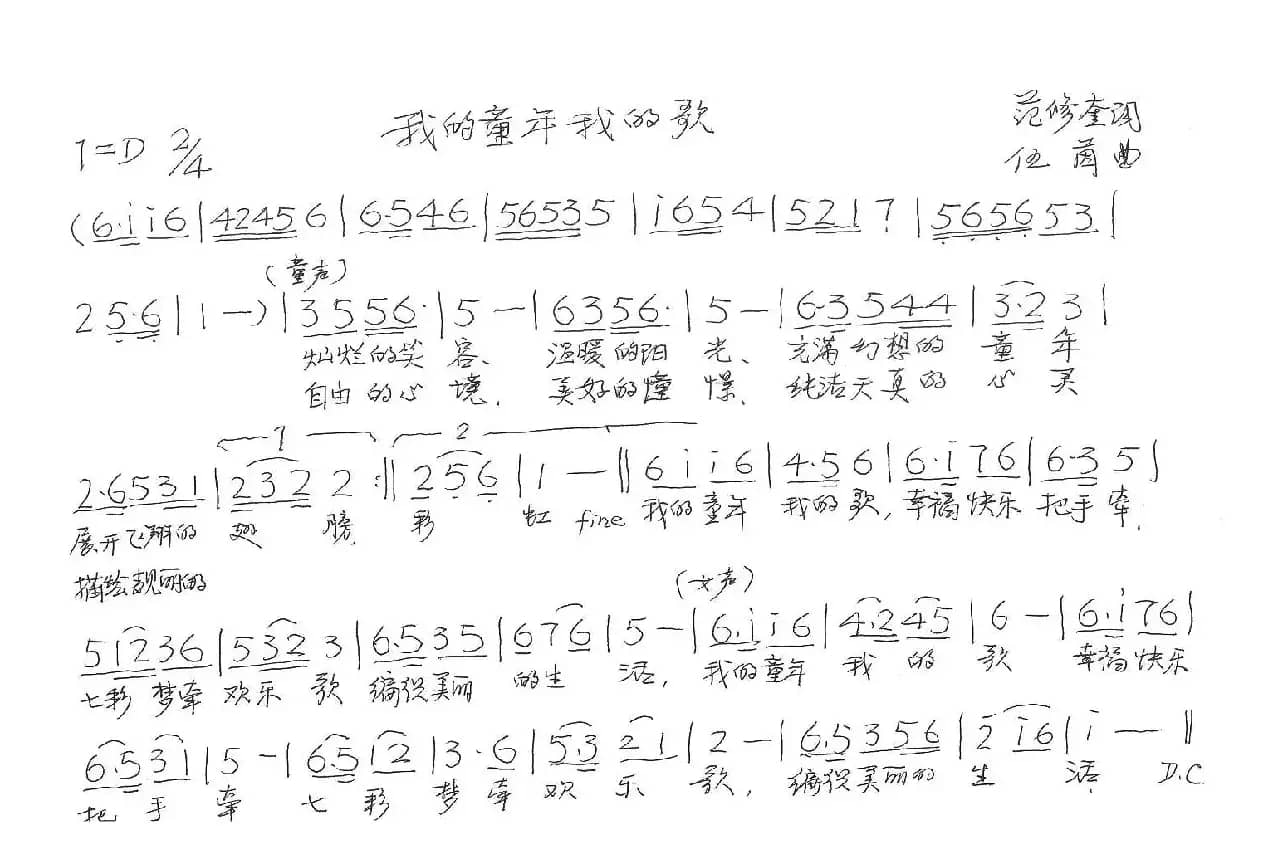 我的童年我的歌
范修奎词
1=D 2/4
伍茵曲
(6·i i6|42456|6·546|56535|i654|521 7|565653|
(童声)
25·6|1—)|3556·|5—|6356·|5—|6·3544|3·23|
灿烂的笑容、温暖的阳光、充满幻想的童年
自由的心境、美好的憧憬、纯洁天真的心灵
1 2
2·6531|2322:‖256|1—‖6i i6|4·56|6·i76|6·35|
展开飞翔的翅膀 彩虹 fine 我的童年 我的歌,幸福快乐 把手牵,
描绘靓丽的
(女声)
51236|5323|6·535|676|5—|6·i i6|4·245|6—|6·i76|
七彩梦牵 欢乐歌 编织美丽的生活,我的童年我的歌 幸福快乐
6·531|5—|6·512|3·6|5·321|2—|6·5356|2i6|i——‖
把手牵 七彩梦牵欢乐歌,编织美丽的生活 D.C